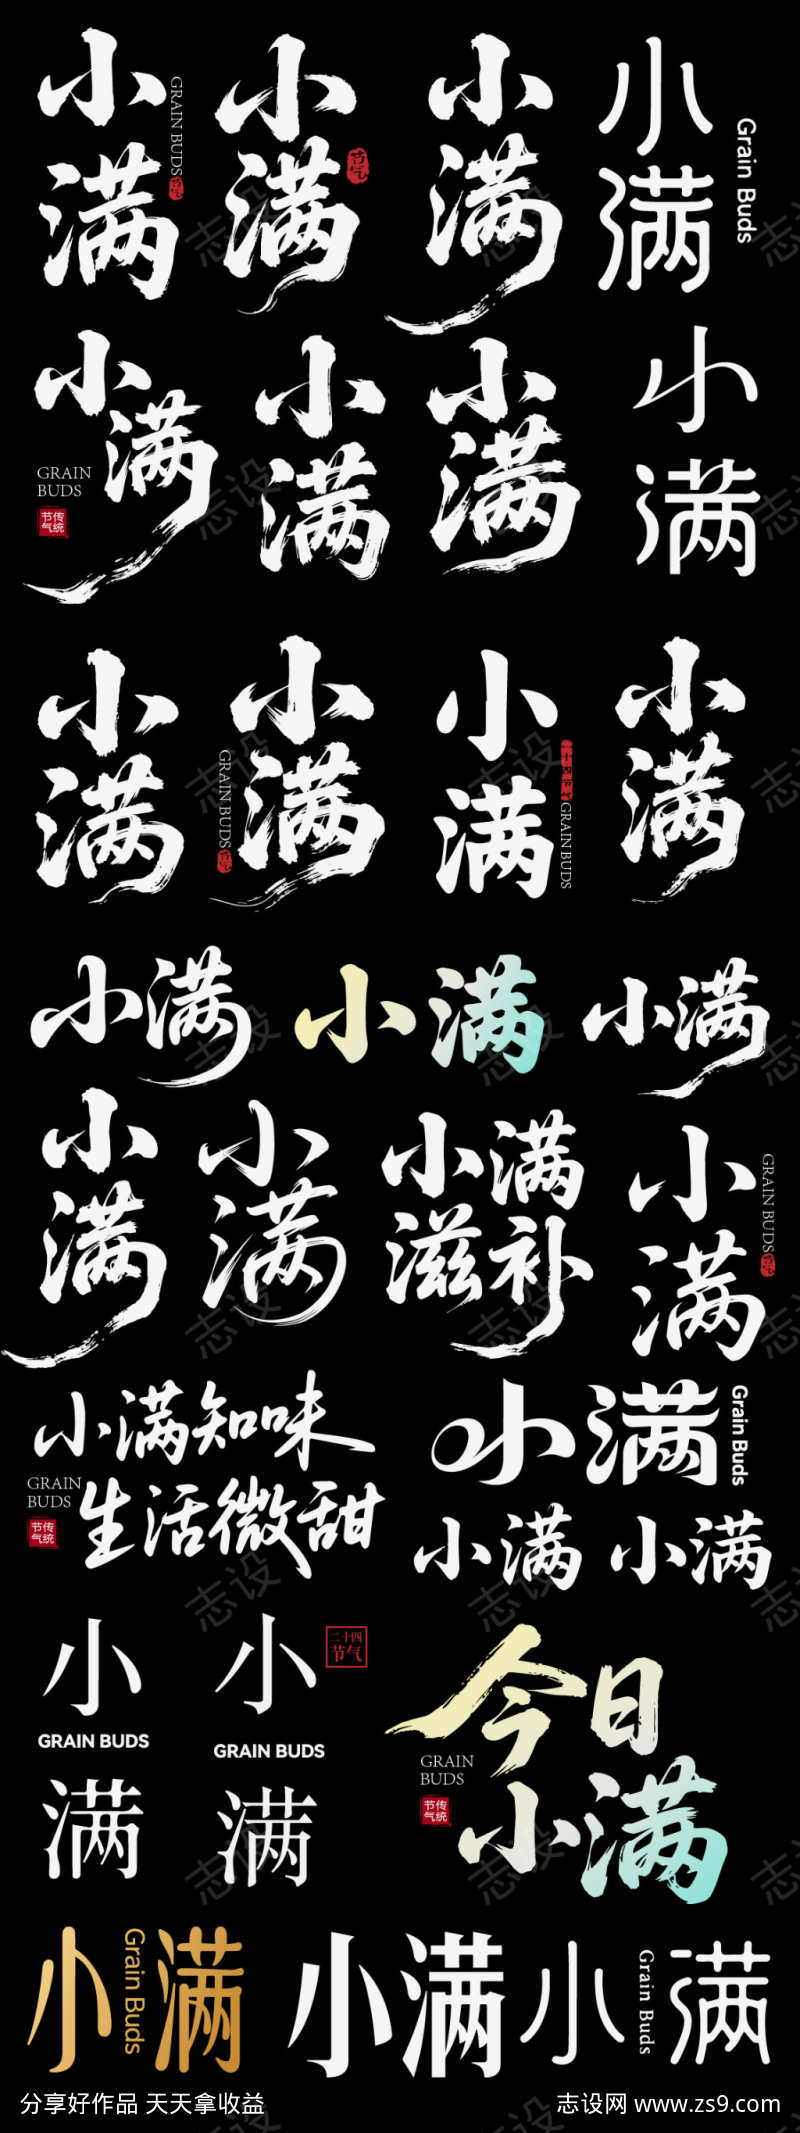 小满
GRAIN BUDS
节气
小满
节气
小满
小满
Grain Buds
小满
GRAIN
BUDS
传统
节气
小满
小满
小满
小满
小满
GRAIN BUDS
节气
小满
二十四节气
GRAIN BUDS
小满
小满
小满
小满
小满
小满
小满
滋补
小满
GRAIN BUDS
节气
小满知味
生活微甜
GRAIN
BUDS
传统
节气
小满
Grain Buds
小满
小满
小
GRAIN BUDS
满
小
二十四
节气
GRAIN BUDS
满
今日
小满
GRAIN
BUDS
传统
节气
小满
Grain Buds
小满
小满
Grain Buds
志设
分享好作品 天天拿收益
志设网 www.zs9.com